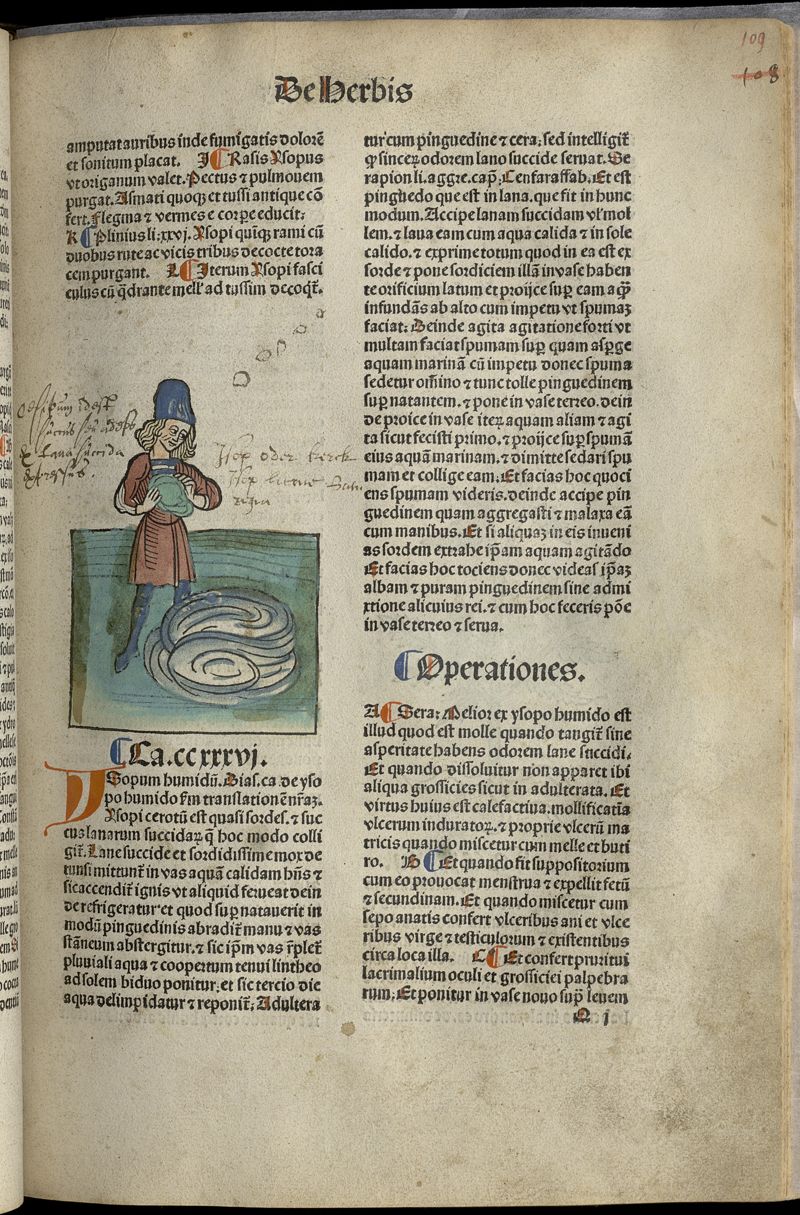 109
108
De Herbis
amputat auribus inde fumigatis dolorē
et sonitum placat. J ¶ Rasis Ysopus
vt origanum valet. Pectus ⁊ pulmonem
purgat. Asmati quoqꝫ et tussi antique cō
fert. Flegma ⁊ vermes e corpe educit:
K ¶ Plinius li: xxvj. Ysopi quinqꝫ rami cū
duobus rute ac vicis tribus decocte tora
cem purgant. L ¶ Iterum Ysopi fasci
culus cū q̄drante mell' ad tussim decoqt̄.
oesipum id est
succus seu adeps
e lana succida
expressus.
Isop oder kerck
Isop
¶ Ca. ccxxxvj.
YSopum humidū. Dias. ca. de yso
po humido fm translationē nr̄aꝫ.
Ysopi cerotū est quasi sordes. ⁊ suc
cus lanarum succidaꝝ q̄ hoc modo colli
git̄. Lane succide et sordidissime mox de
tunsi mittunt̄ in vas aquā calidam hn̄s ⁊
sic accendit̄ ignis vt aliquid ferueat dein
de refrigeratur et quod sup natauerit in
modū pinguedinis abradit̄ manu ⁊ vas
stāneum abstergitur. ⁊ sic ip̄m vas r̄plet̄
pluuiali aqua ⁊ coopertum tenui lintheo
ad solem biduo ponitur: et sic tercio die
aqua delimpidatur ⁊ reponit̄: Adultera
tur cum pinguedine ⁊ cera: sed intelligit̄
ꝙ sinceꝝ odorem lano succide seruat. Se
rapion li. aggre. cap: Cenfaraffab: Et est
pinguedo que est in lana. que fit in hunc
modum. Accipe lanam succidam vl' mol
lem. ⁊ laua eam cum aqua calida ⁊ in sole
calido. ⁊ exprime totum quod in ea est ex
sorde ⁊ pone sordiciem illā in vase haben
te orificium latum et proijce sup eam aq̄ꝫ
infundās ab alto cum impetu vt spumaꝫ
faciat: Deinde agita agitatione forti vt
multam faciat spumam sup quam asperge
aquam marinā cū impetu donec spuma
sedetur om̄ino ⁊ tunc tolle pinguedinem
sup natantem. ⁊ pone in vase terreo. dein
de proice in vase iteꝝ aquam aliam ⁊ agi
ta sicut fecisti primo. ⁊ proijce sup spumā
eius aquā marinam. ⁊ dimitte sedari spu
mam et collige eam: Et facias hoc quoci
ens spumam videris. deinde accipe pin
guedinem quam aggregasti ⁊ malaxa eā
cum manibus. Et si aliquaꝫ in eis inueni
as sordem extrahe ip̄am aquam agitādo
Et facias hoc tociens donec videas ip̄aꝫ
albam ⁊ puram pinguedinem sine admi
xtione alicuius rei. ⁊ cum hoc feceris pōe
in vase terreo ⁊ serua.
¶ Operationes.
A ¶ Sera: Melior ex ysopo humido est
illud quod est molle quando tangit̄ sine
asperitate habens odorem lane succidi.
Et quando dissoluitur non apparet ibi
aliqua grossicies sicut in adulterata. Et
virtus huius est calefactiua. mollificatīa
vlcerum induratoꝝ. ⁊ proprie vlcerū ma
tricis quando miscetur cum melle et buti
ro. B ¶ Et quando fit suppositorium
cum eo prouocat menstrua ⁊ expellit fetū
⁊ secundinam. Et quando miscetur cum
sepo anatis confert vlceribus ani et vlce
ribus virge ⁊ testiculorum ⁊ existentibus
circa loca illa. C ¶ Et confert pruritui
lacrimalium oculi et grossiciei palpebra
rum: Et ponitur in vase nouo sup leuem
Q j